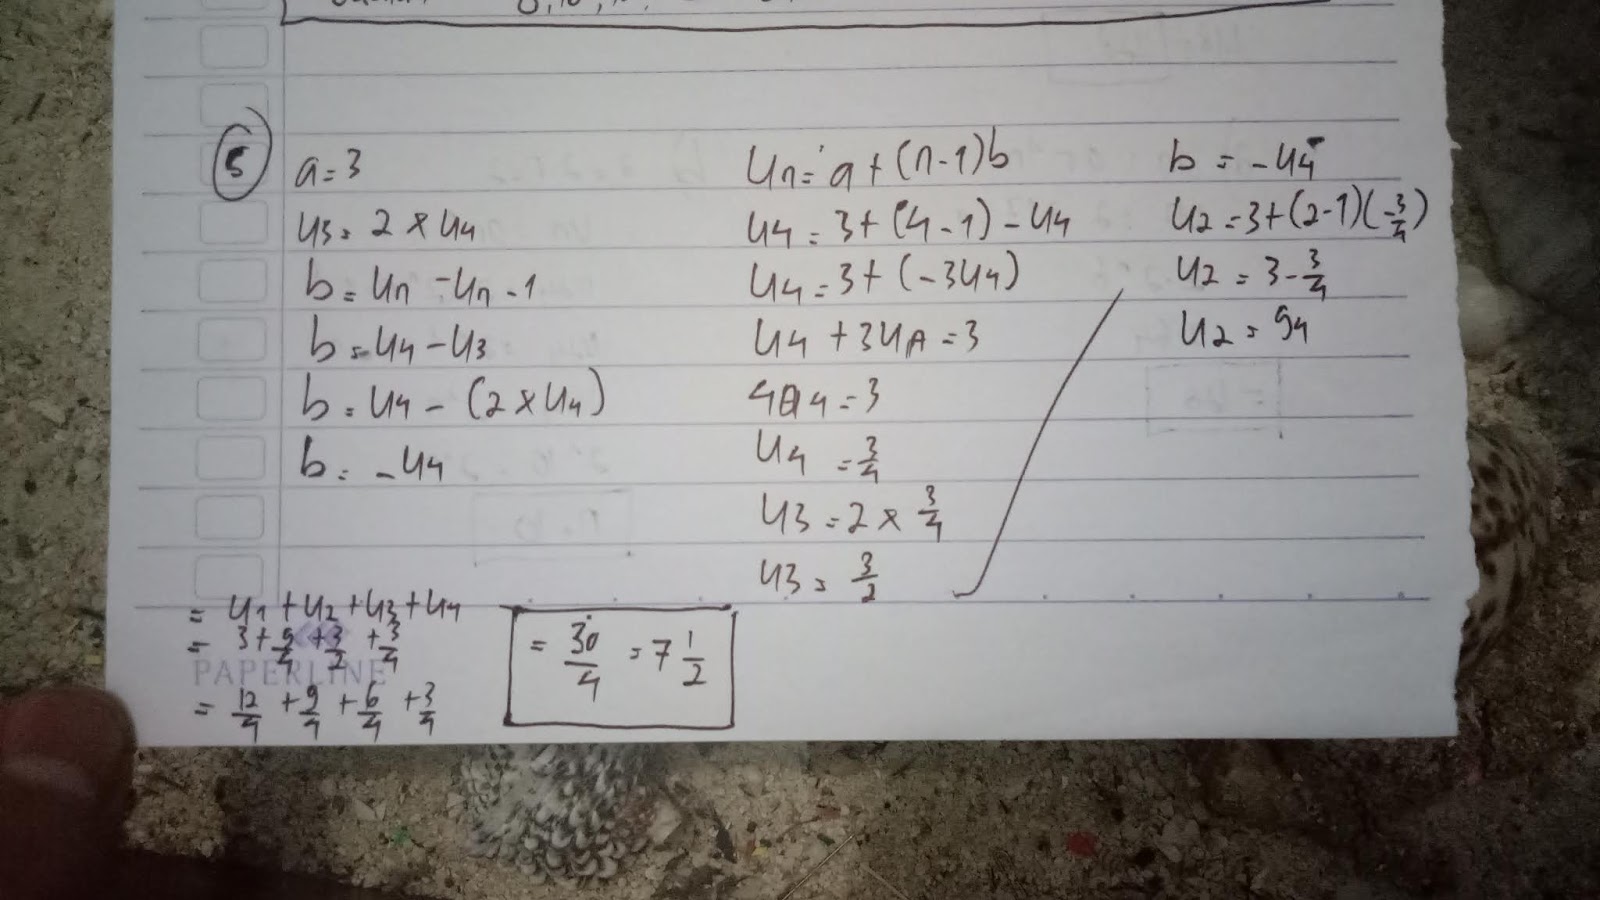 5
a = 3
U3 = 2 × U4
b = Un - Un - 1
b = U4 - U3
b = U4 - (2 × U4)
b = - U4
Un = a + (n-1)b
U4 = 3 + (4-1) - U4
U4 = 3 + (-3U4)
U4 + 3U4 = 3
4U4 = 3
U4 = 3/4
U3 = 2 × 3/4
U3 = 3/2
b = - U4
U2 = 3 + (2-1)(-3/4)
U2 = 3 - 3/4
U2 = 94
= U1 + U2 + U3 + U4
= 3 + 9/4 + 3/2 + 3/4
PAPERLINE
= 12/4 + 9/4 + 6/4 + 3/4
= 30/4 = 7 1/2